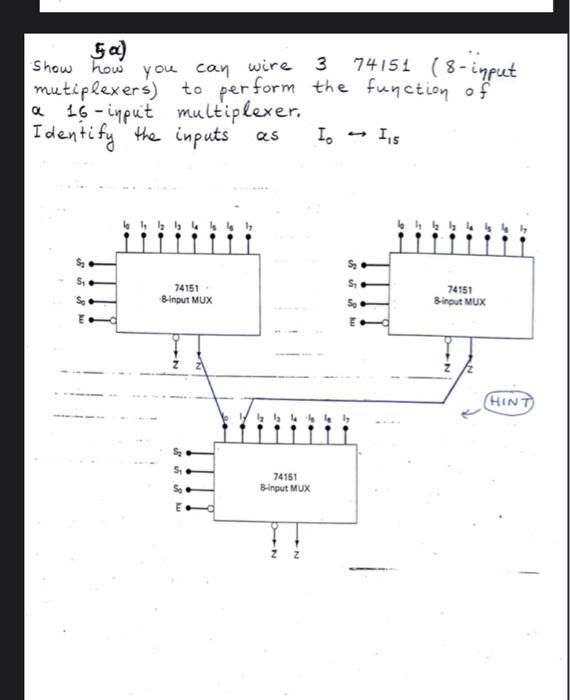 5a)
Show how you can wire 3 74151 (8-input
mutiplexers) to perform the function of
a 16-input multiplexer.
Identify the inputs as I₀ ↔ I₁₅
I₀ I₁ I₂ I₃ I₄ I₅ I₆ I₇
S₂
S₁
S₀
E̅
74151
8-input MUX
Z̅ Z
I₀ I₁ I₂ I₃ I₄ I₅ I₆ I₇
S₂
S₁
S₀
E̅
74151
8-input MUX
Z̅ Z
HINT
I₀ I₁ I₂ I₃ I₄ I₅ I₆ I₇
S₂
S₁
S₀
E̅
74151
8-input MUX
Z̅ Z